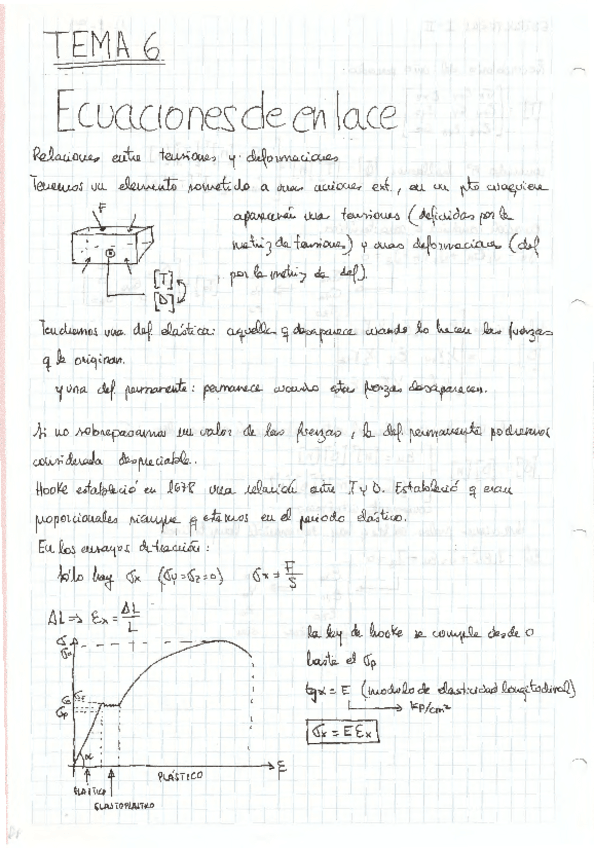 TEMA 6
Ecuaciones de enlace
Relaciones entre tensiones y deformaciones
Tenemos un elemento sometido a unas acciones ext., en un pto cualquiera
F
aparecerán unas tensiones (definidas por la
matriz de tensiones) y unas deformaciones (def
por la matriz de def).
[T]
[D]
Tendremos una def elástica: aquella q desaparece cuando lo hacen las fuerzas
q la originan.
y una def. permanente: permanece cuando estas fuerzas desaparecen.
Si no sobrepasamos un valor de las fuerzas, la def. permanente podremos
considerarla despreciable.
Hooke estableció en 1678 una relación entre T y D. Estableció q eran
proporcionales siempre q estemos en el periodo elástico.
En los ensayos de tracción:
Sólo hay σx (σy=σz=0) σx = F/S
ΔL ⇒ εx = ΔL/L
la ley de hooke se cumple desde 0
hasta el σp
tgα = E (modulo de elasticidad longitudinal)
kp/cm²
σx = E εx
σ
σE
σp
α
ε
PLÁSTICO
ELÁSTICO
ELASTOPLÁSTICO